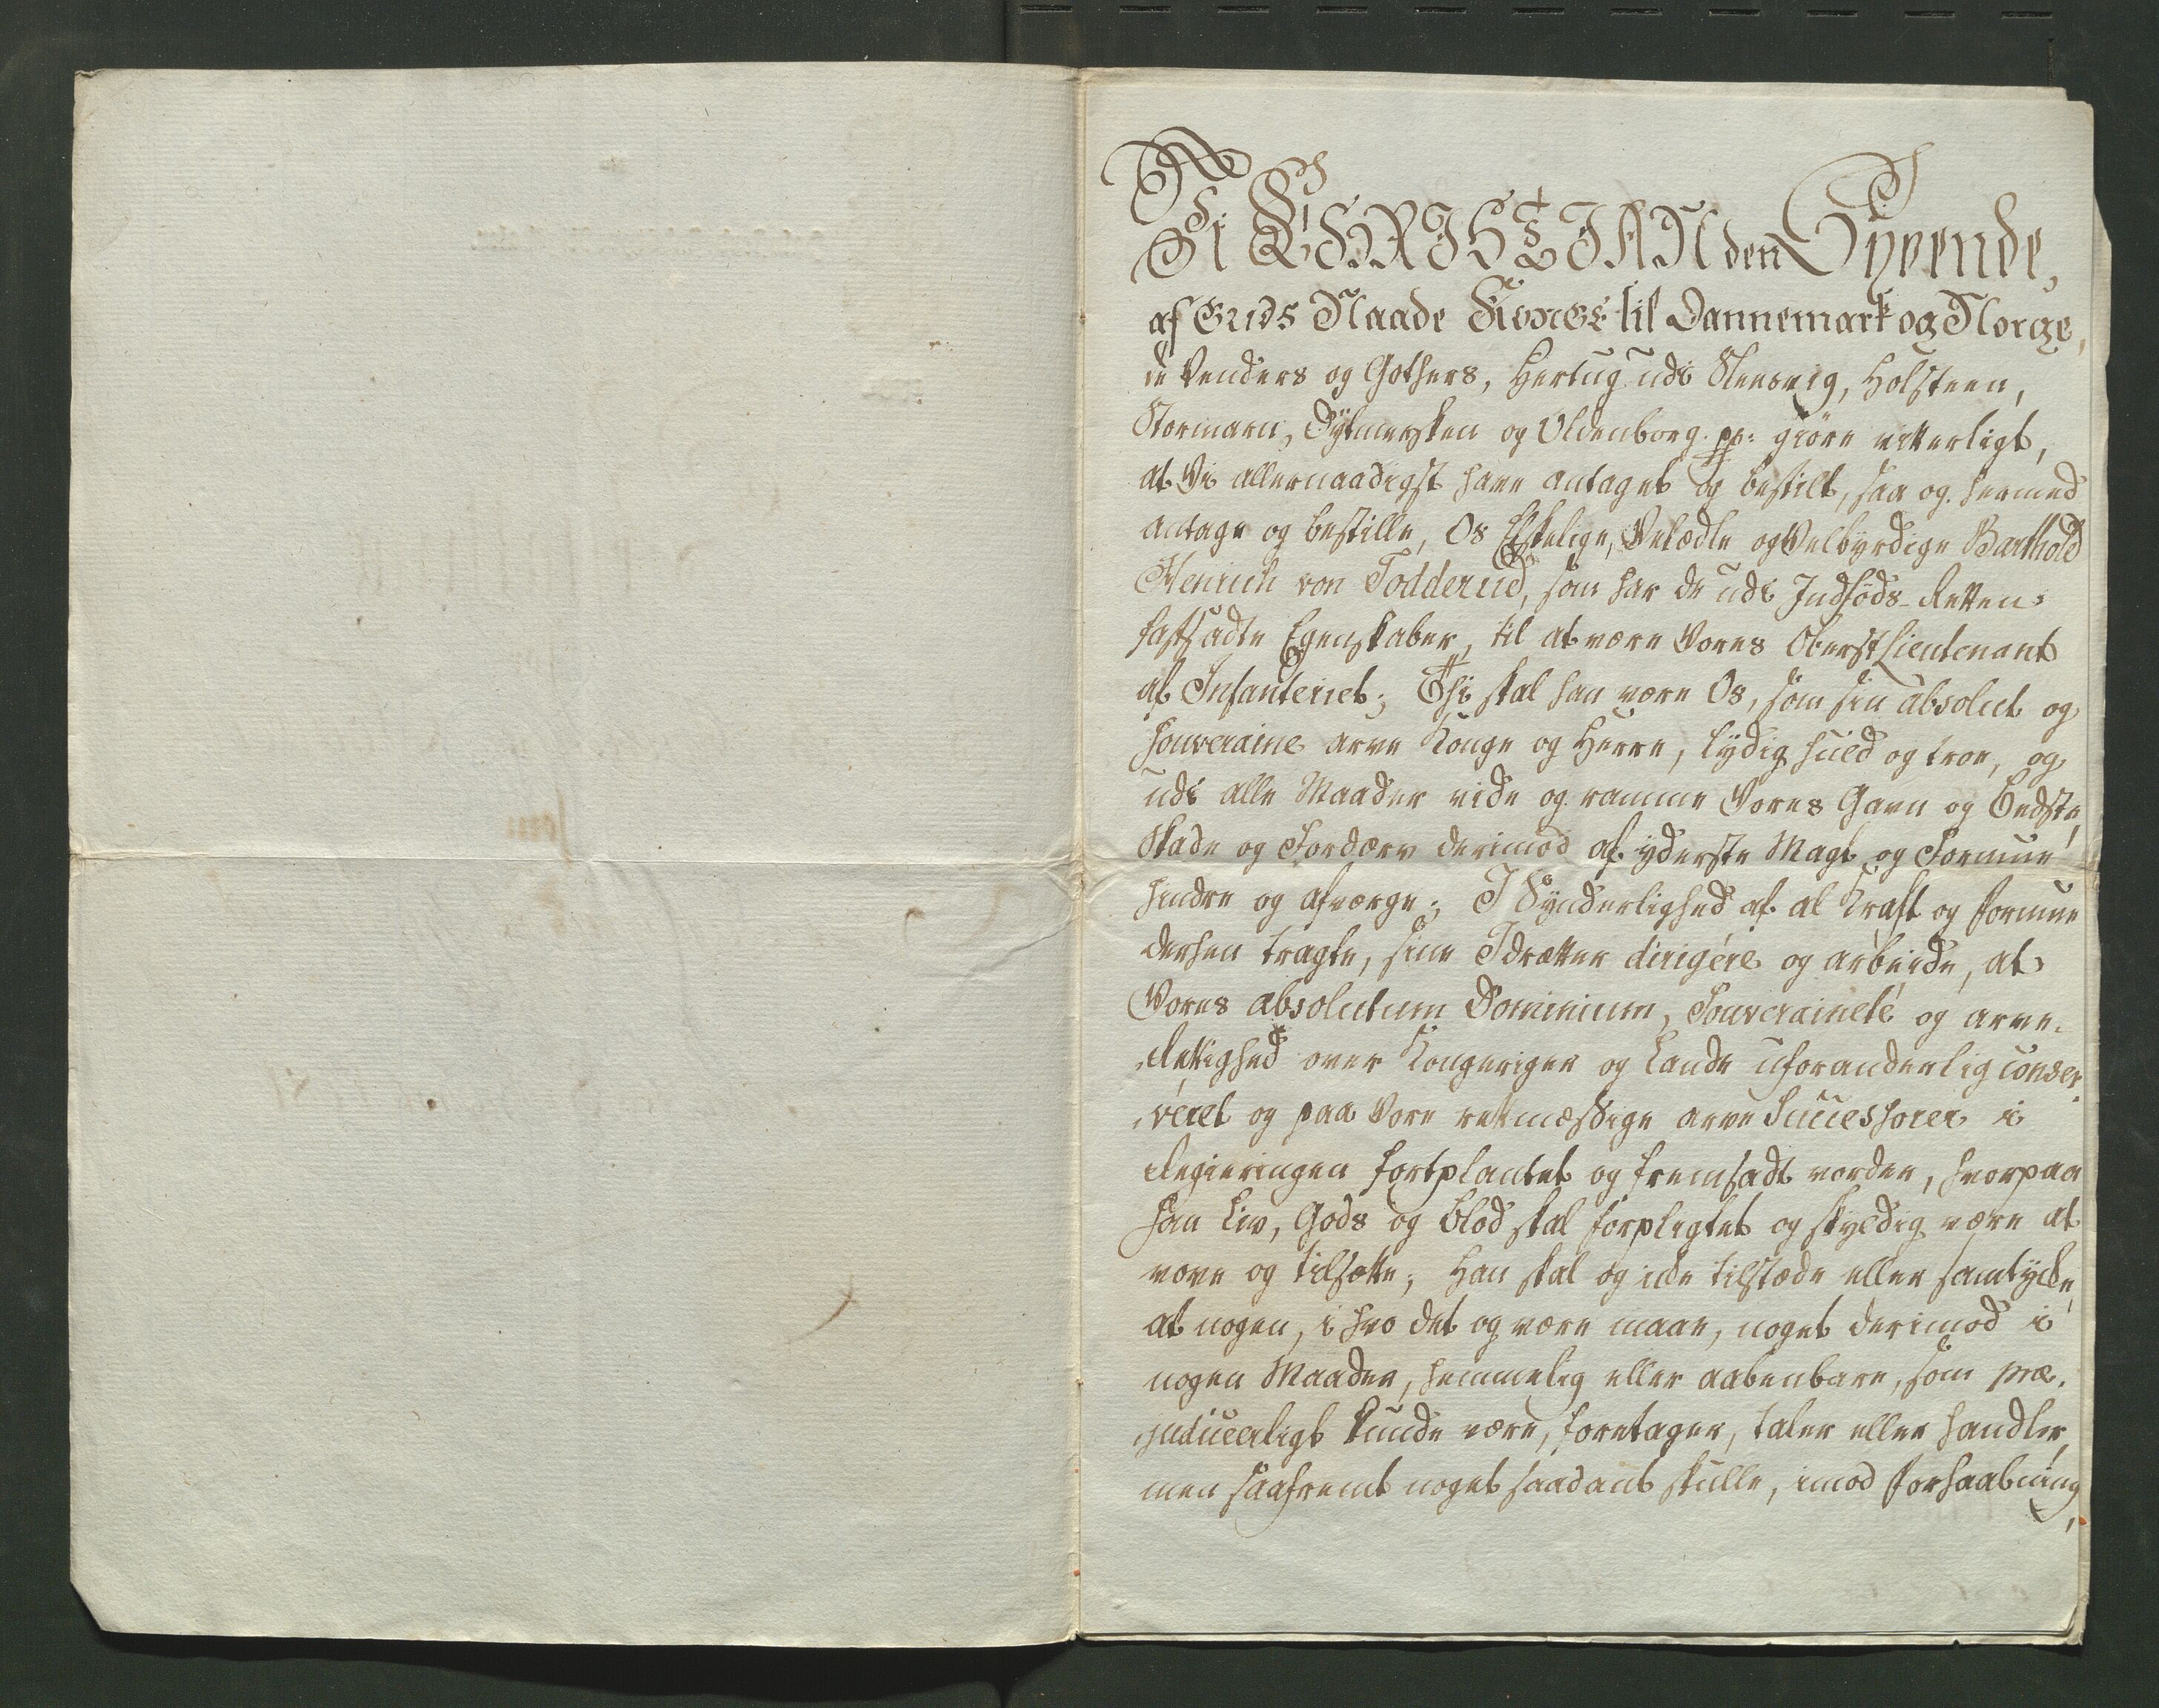 Vi CHRISTIAN den Syvende,
af Guds Naade Konge til Dannemark og Norge,
de Venders og Gothers, Hertug udi Slesvig, Holsteen,
Stormarn, Dytmersken og Oldenborg. pp: giøre vitterligt,
at Vi allernaadigst have antaget og bestilt, saa og hermed
antage og bestille, Os Elskelige, Velædle og Velbyrdige Barthold
Henrich von Todderud, som har de udi Indføds-Retten
fastsadte Egenskaber, til at være Vores OberstLieutenant
af Infanteriet; Thi skal han være Os, som sin absolut og
souveraine arve Konge og Herre, lydig huld og troe, og
udi alle Maader vide og ramme Vores Gavn og Bedste,
Skade og Fordærv derimod af yderste Magt og Formue
hindre og afværge; I Synderlighed af al Kraft og formue
derhen tragte, sine Idrætter dirigére og arbeide, at
Vores absolutum Dominium, Souveraineté og arve-
Rettighed over Kongeriger og Lande uforanderlig conser-
veret og paa Vore retmæssige arve Successorer i
Regieringen fortplantet og fremsadt vorder, hvorpaa
han Liv, Gods og blod skal forpligtet og skyldig være at
vove og tilsætte; Han skal og ide tilstæde eller samtykke,
at nogen, i hvo det og være maae, noget derimod i
nogen Maader, hemmelig eller aabenbare, som præ-
judiceerligt kunde være, foretager, taler eller handler,
men saafremt noget saadant skulle, imod forhaabning,